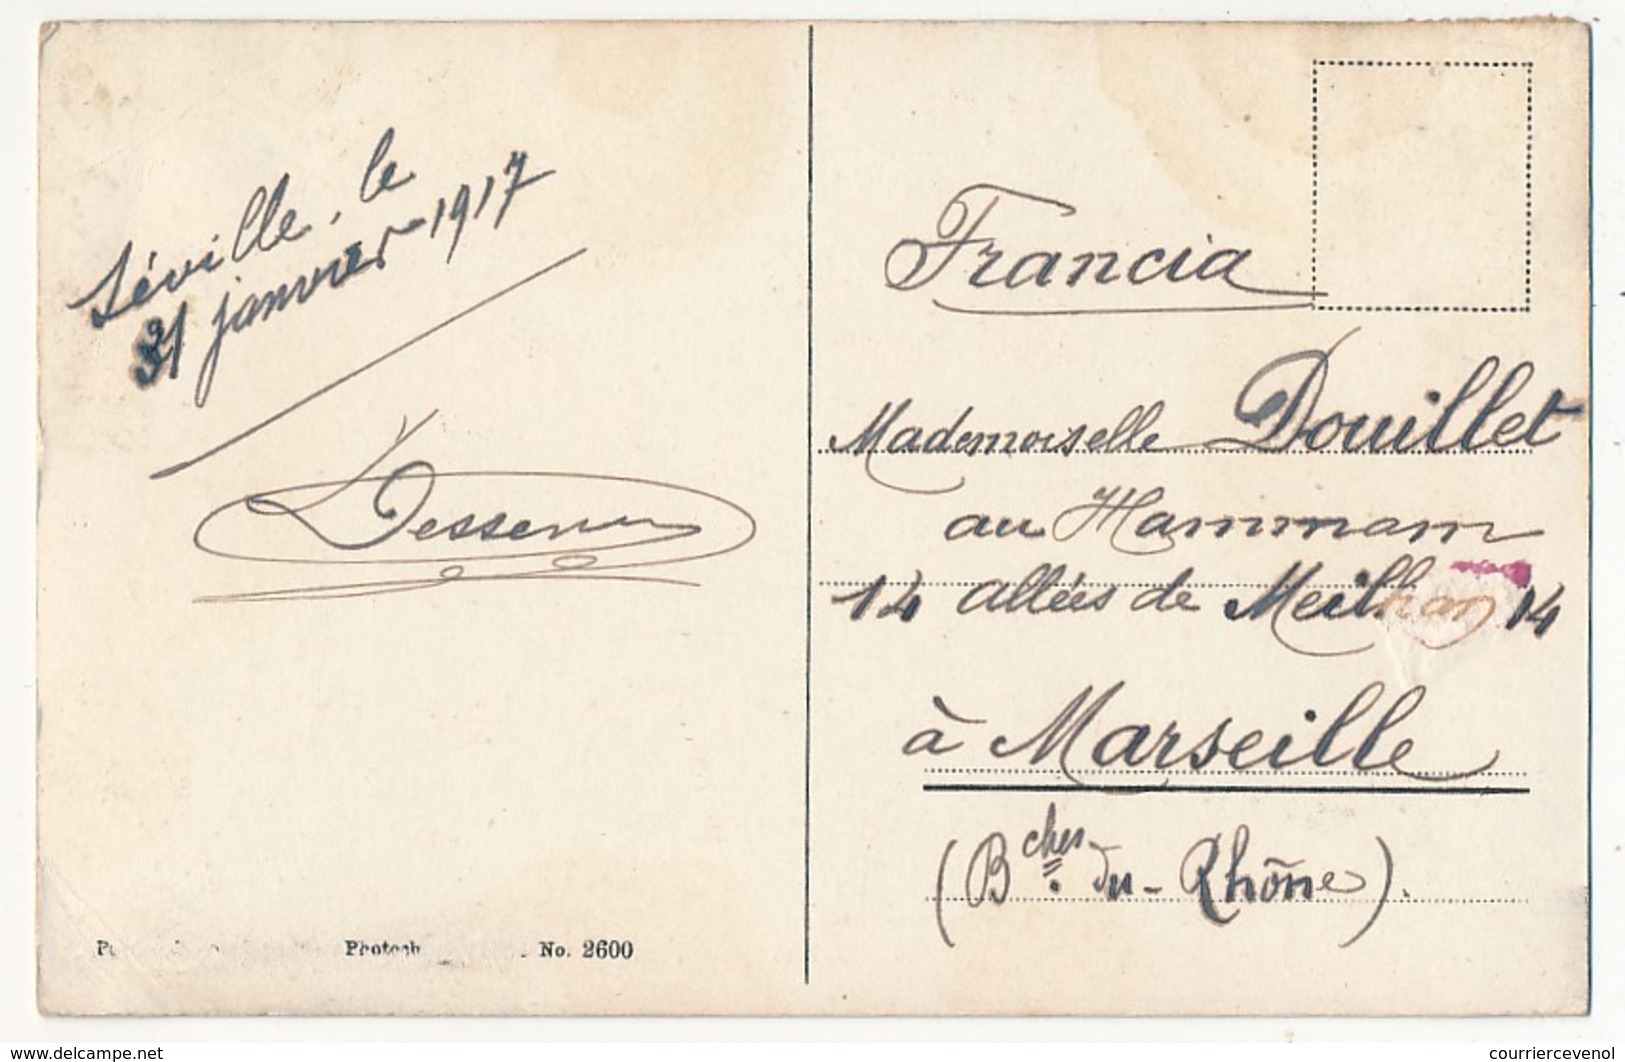 Séville, le
31 janvier 1917
Francia
Mademoiselle Douillet
au Hammam
14 allées de Meilhan 14
à Marseille
(Bches du-Rhône).
No. 2600
www.delcampe.net
courriercevenol